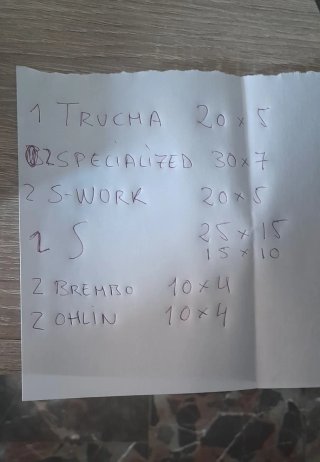 1 TRUCHA 20 x 5
2 SPECIALIZED 30x7
2 S-WORK 20x5
2 S 25x15
15x10
2 BREMBO 10x4
2 OHLIN 10x4